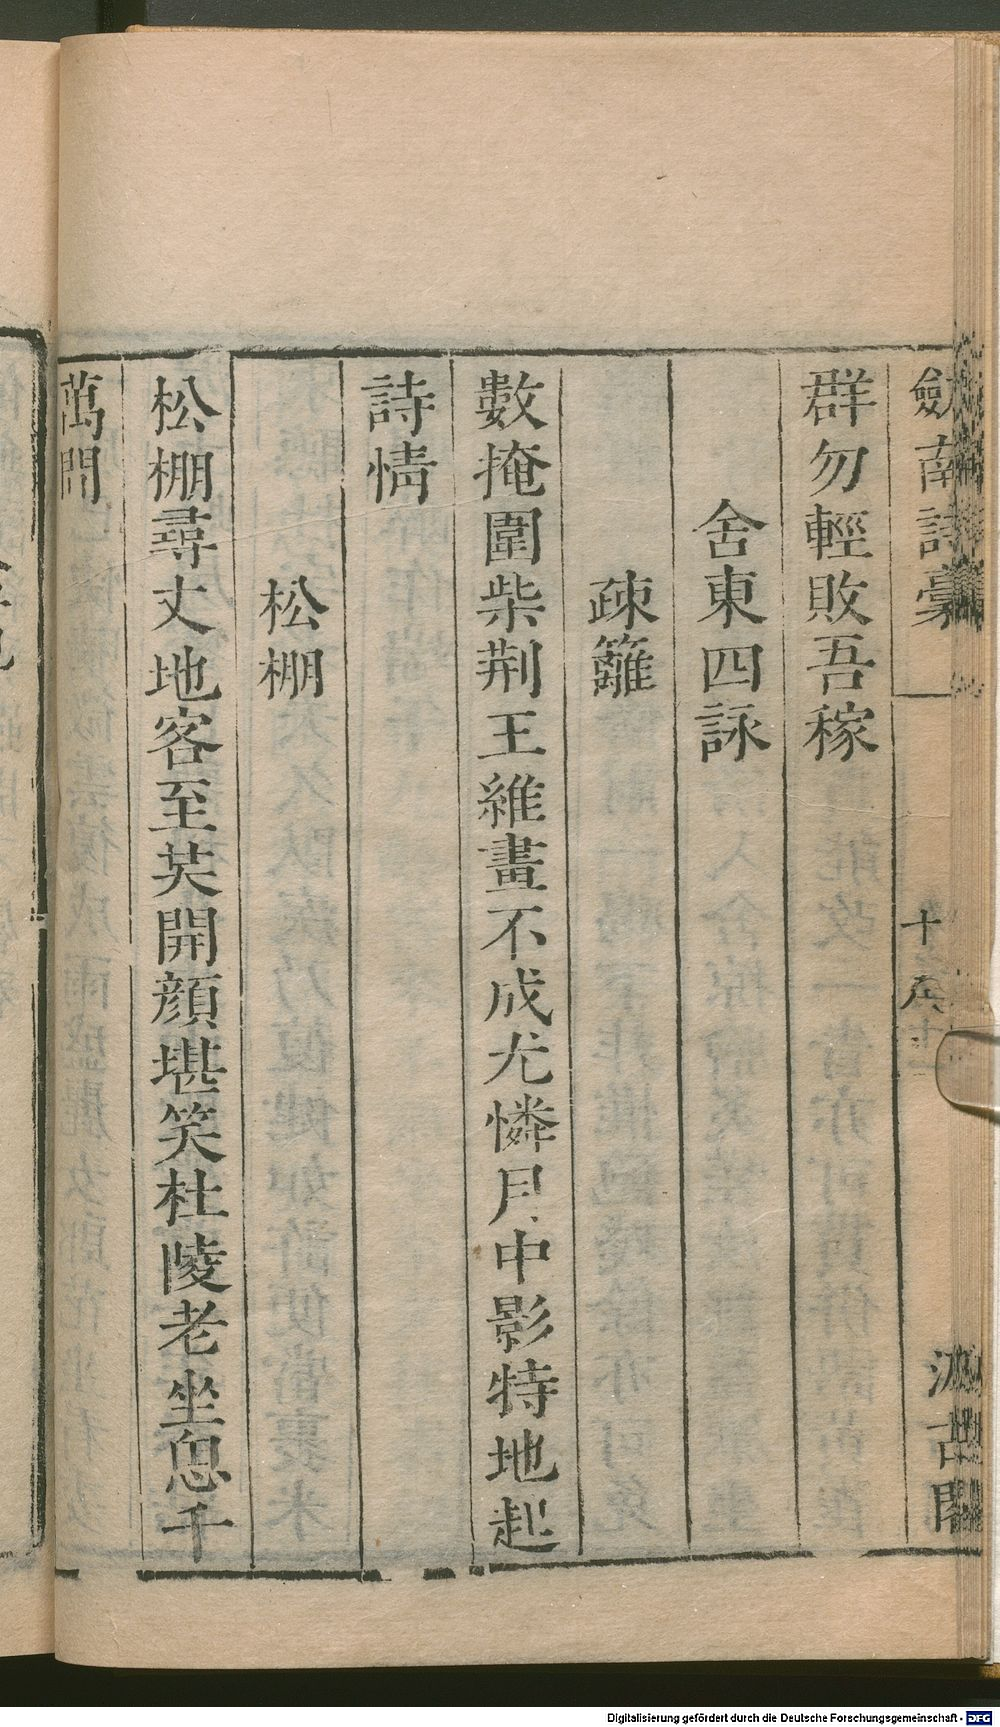 劒南詩稾
十
汲古閣
群勿輕敗吾稼
舍東四詠
疎籬
數掩圍柴荆王維畫不成尤憐月中影特地起
詩情
松棚
松棚尋丈地客至芺開顔堪笑杜陵老坐思千
萬間
Digitalisierung gefördert durch die Deutsche Forschungsgemeinschaft - DFG